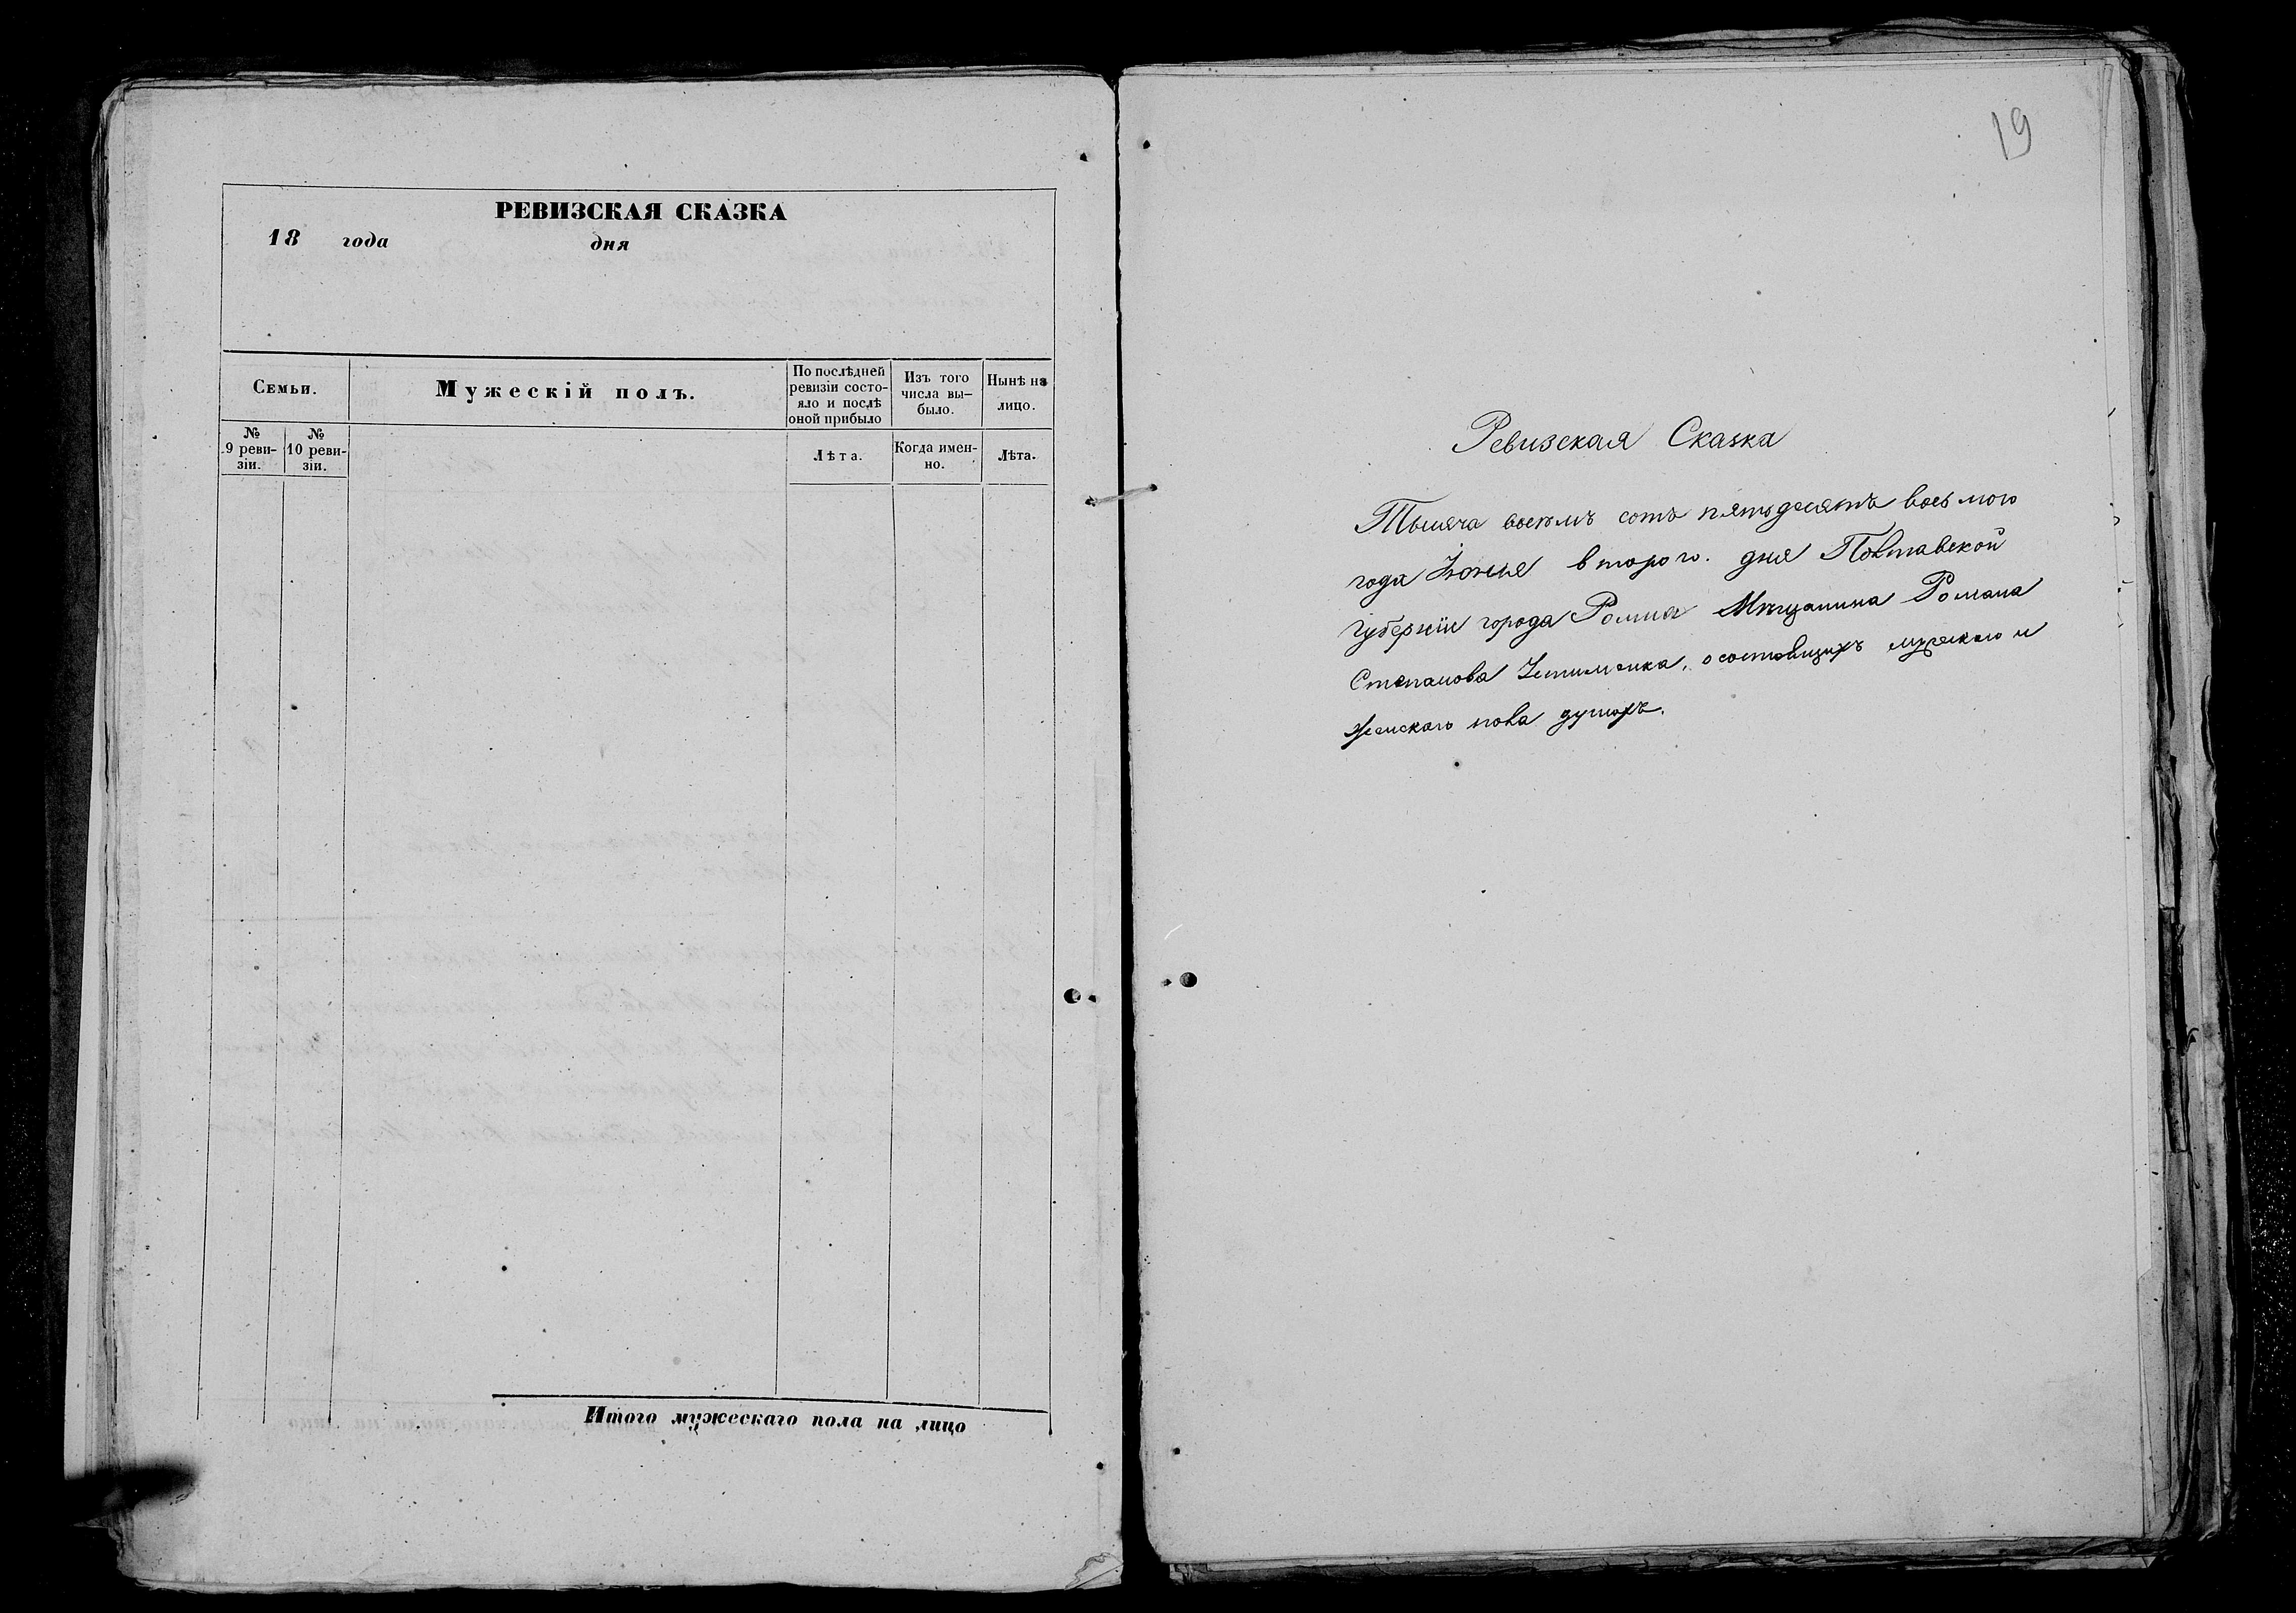 РЕВИЗСКАЯ СКАЗКА
18 года дня
Семьи.
Мужескій полъ.
По послѣдней
ревизіи состо-
яло и послѣ
оной прибыло
Изъ того
числа вы-
было.
Нынѣ на
лицо.
№
9 реви-
зіи.
№
10 реви-
зіи.
Лѣта.
Когда имен-
но.
Лѣта.
Итого мужескаго пола на лицо
19
Ревизская Сказка
Тысяча восемъ сотъ пятьдесятъ восьмого
года Іюня второго. дня Полтавской
губерніи города Ромна Мѣщанина Романа
Степанова о состоящихъ мужеского и
женскаго пола душахъ.